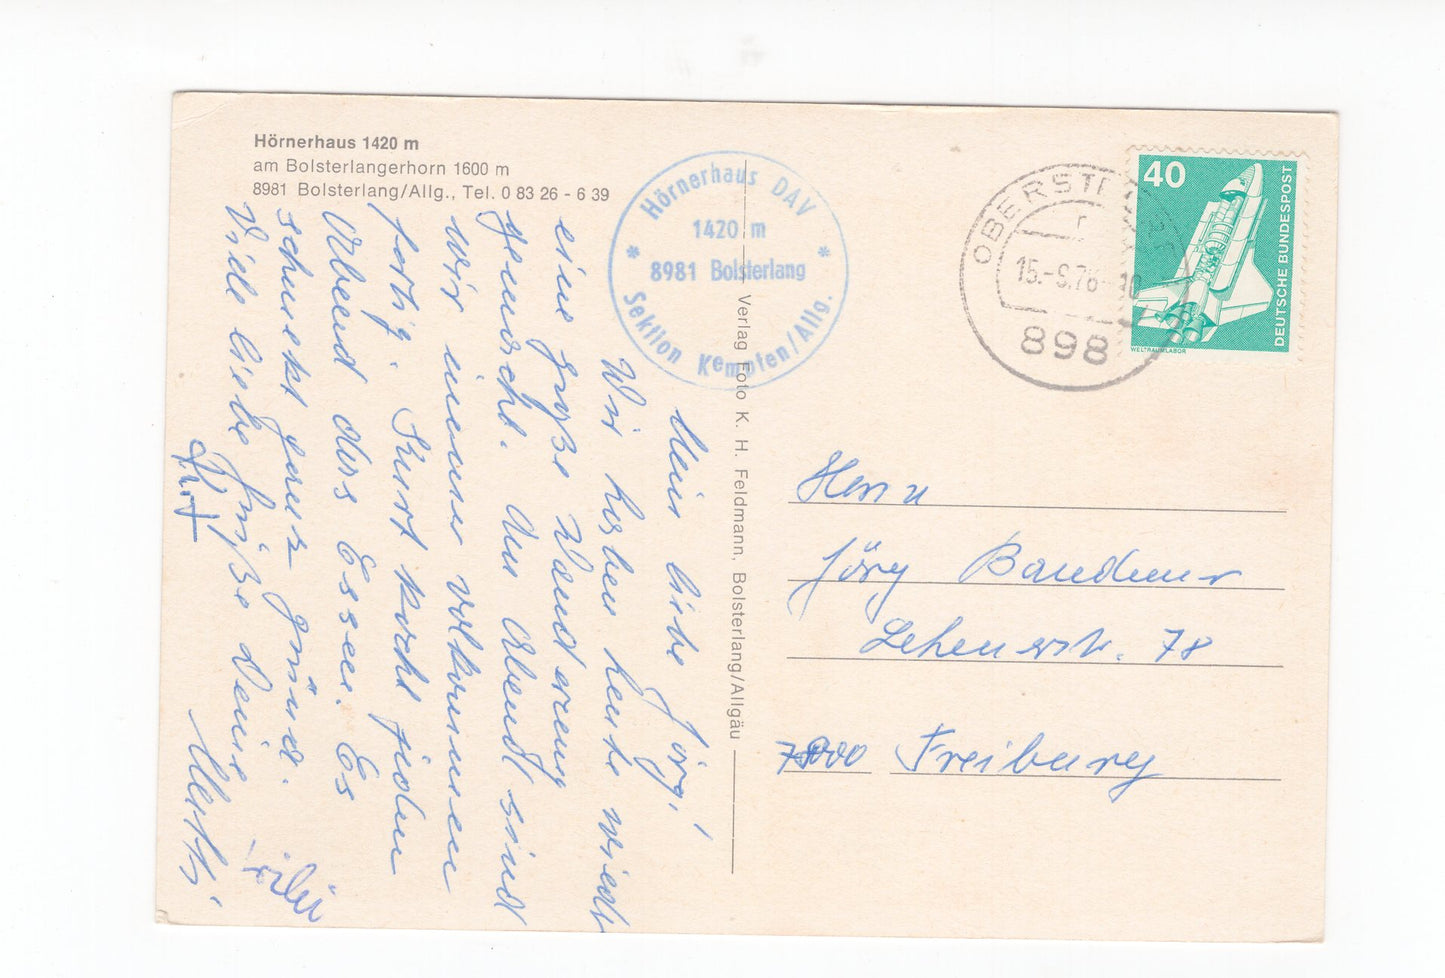 Hörnerhaus 1420 m
am Bolsterlangerhorn 1600 m
8981 Bolsterlang/Allg., Tel. 0 83 26 - 6 39
Hörnerhaus DAV
1420 m
* 8981 Bolsterlang *
Sektion Kempten/Allg.
15.-9.76-10
898
40
DEUTSCHE BUNDESPOST
WELTRAUMLABOR
Mein liebe Jörg!
Wir haben heute wieder
eine große Wanderung
gemacht. Am Abend sind
wir immer vollkommen
fertig. Kurt kocht jeden
Abend das Essen. Es
schmeckt ganz prima.
Viele liebe Grüße Deine
Kurt
Verlag Foto K. H. Feldmann, Bolsterlang/Allgäu
Herrn
Jörg
78
Freiburg